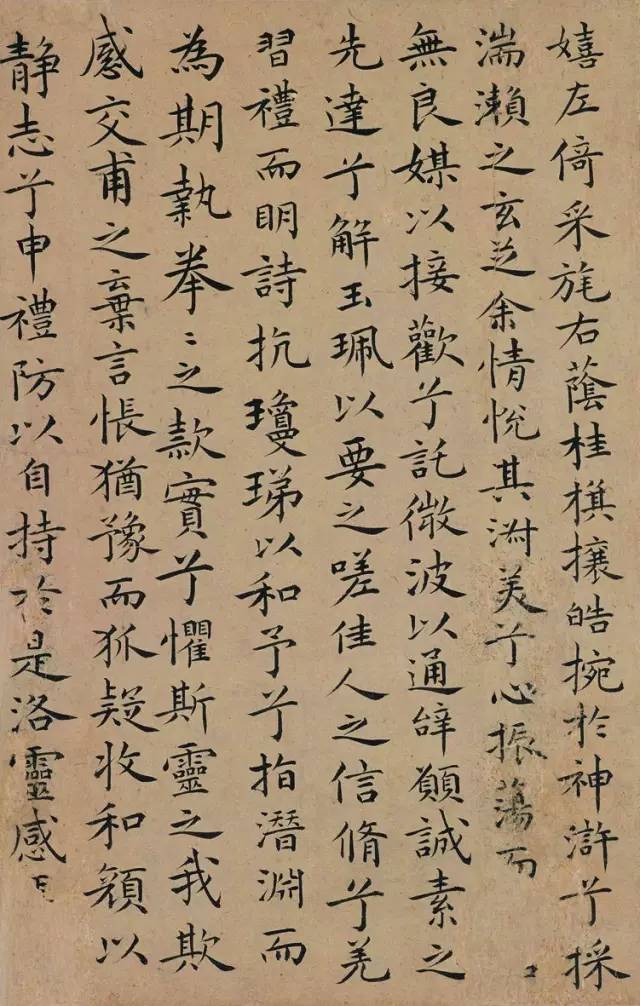 嬉左倚采旄右蔭桂棋攘皓捥於神滸兮採
湍瀨之玄芝余情悅其淑美兮心振蕩而
無良媒以接歡兮託微波以通辝願誠素之
先達兮解玉珮以要之嗟佳人之信脩兮羌
習禮而明詩抗瓊珶以和予兮指潛淵而
為期執拳〻之款實兮懼斯靈之我欺
感交甫之棄言悵猶豫而狐疑收和顏以
靜志兮申禮防以自持於是洛靈感